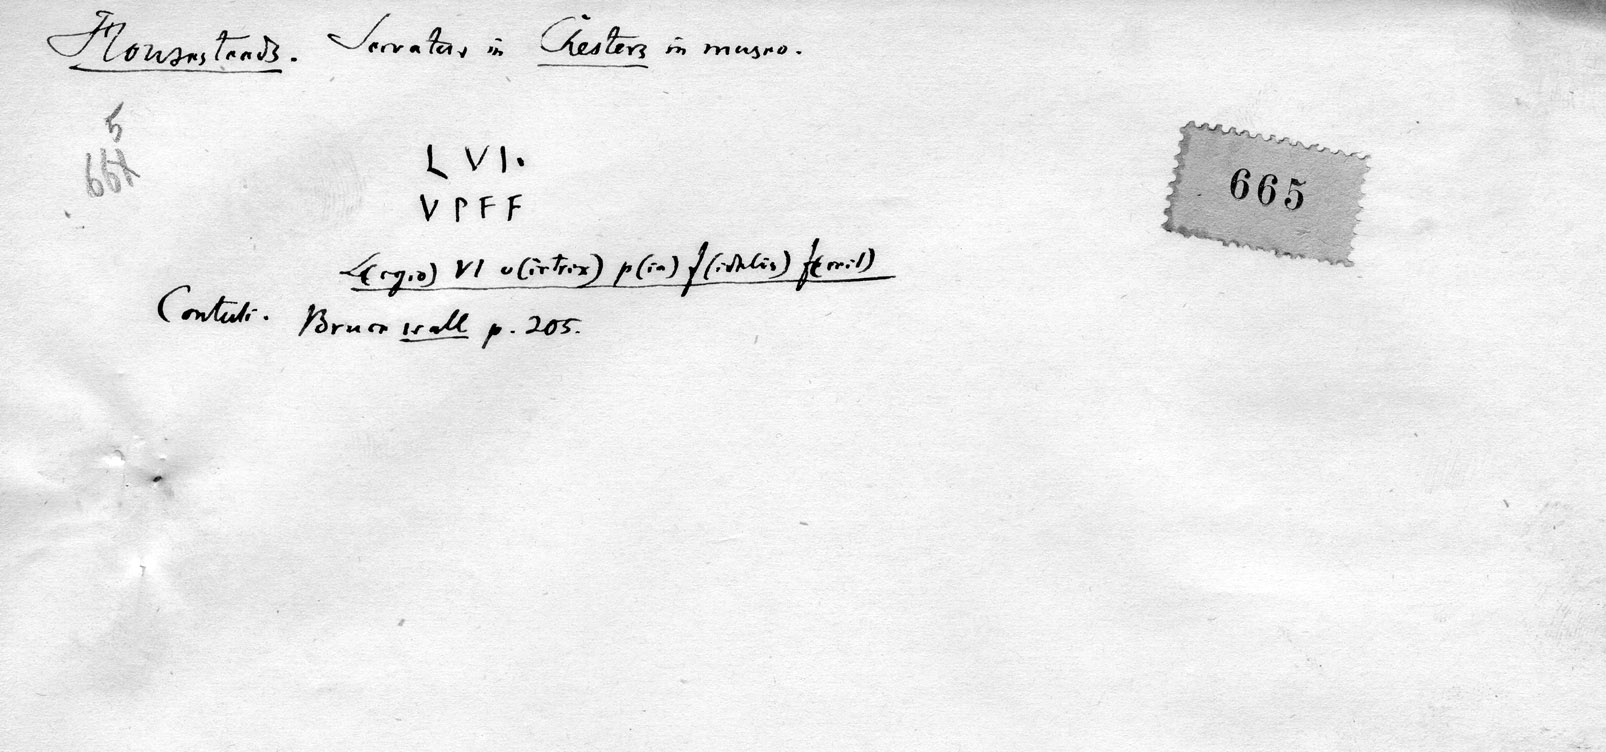 Housesteads. Servatur in Chesters in museo.
5
664
L VI.
VPFF
665
L(egio) VI v(ictrix) p(ia) f(idelis) f(ecit)
Contuli. Bruce wall p. 205.